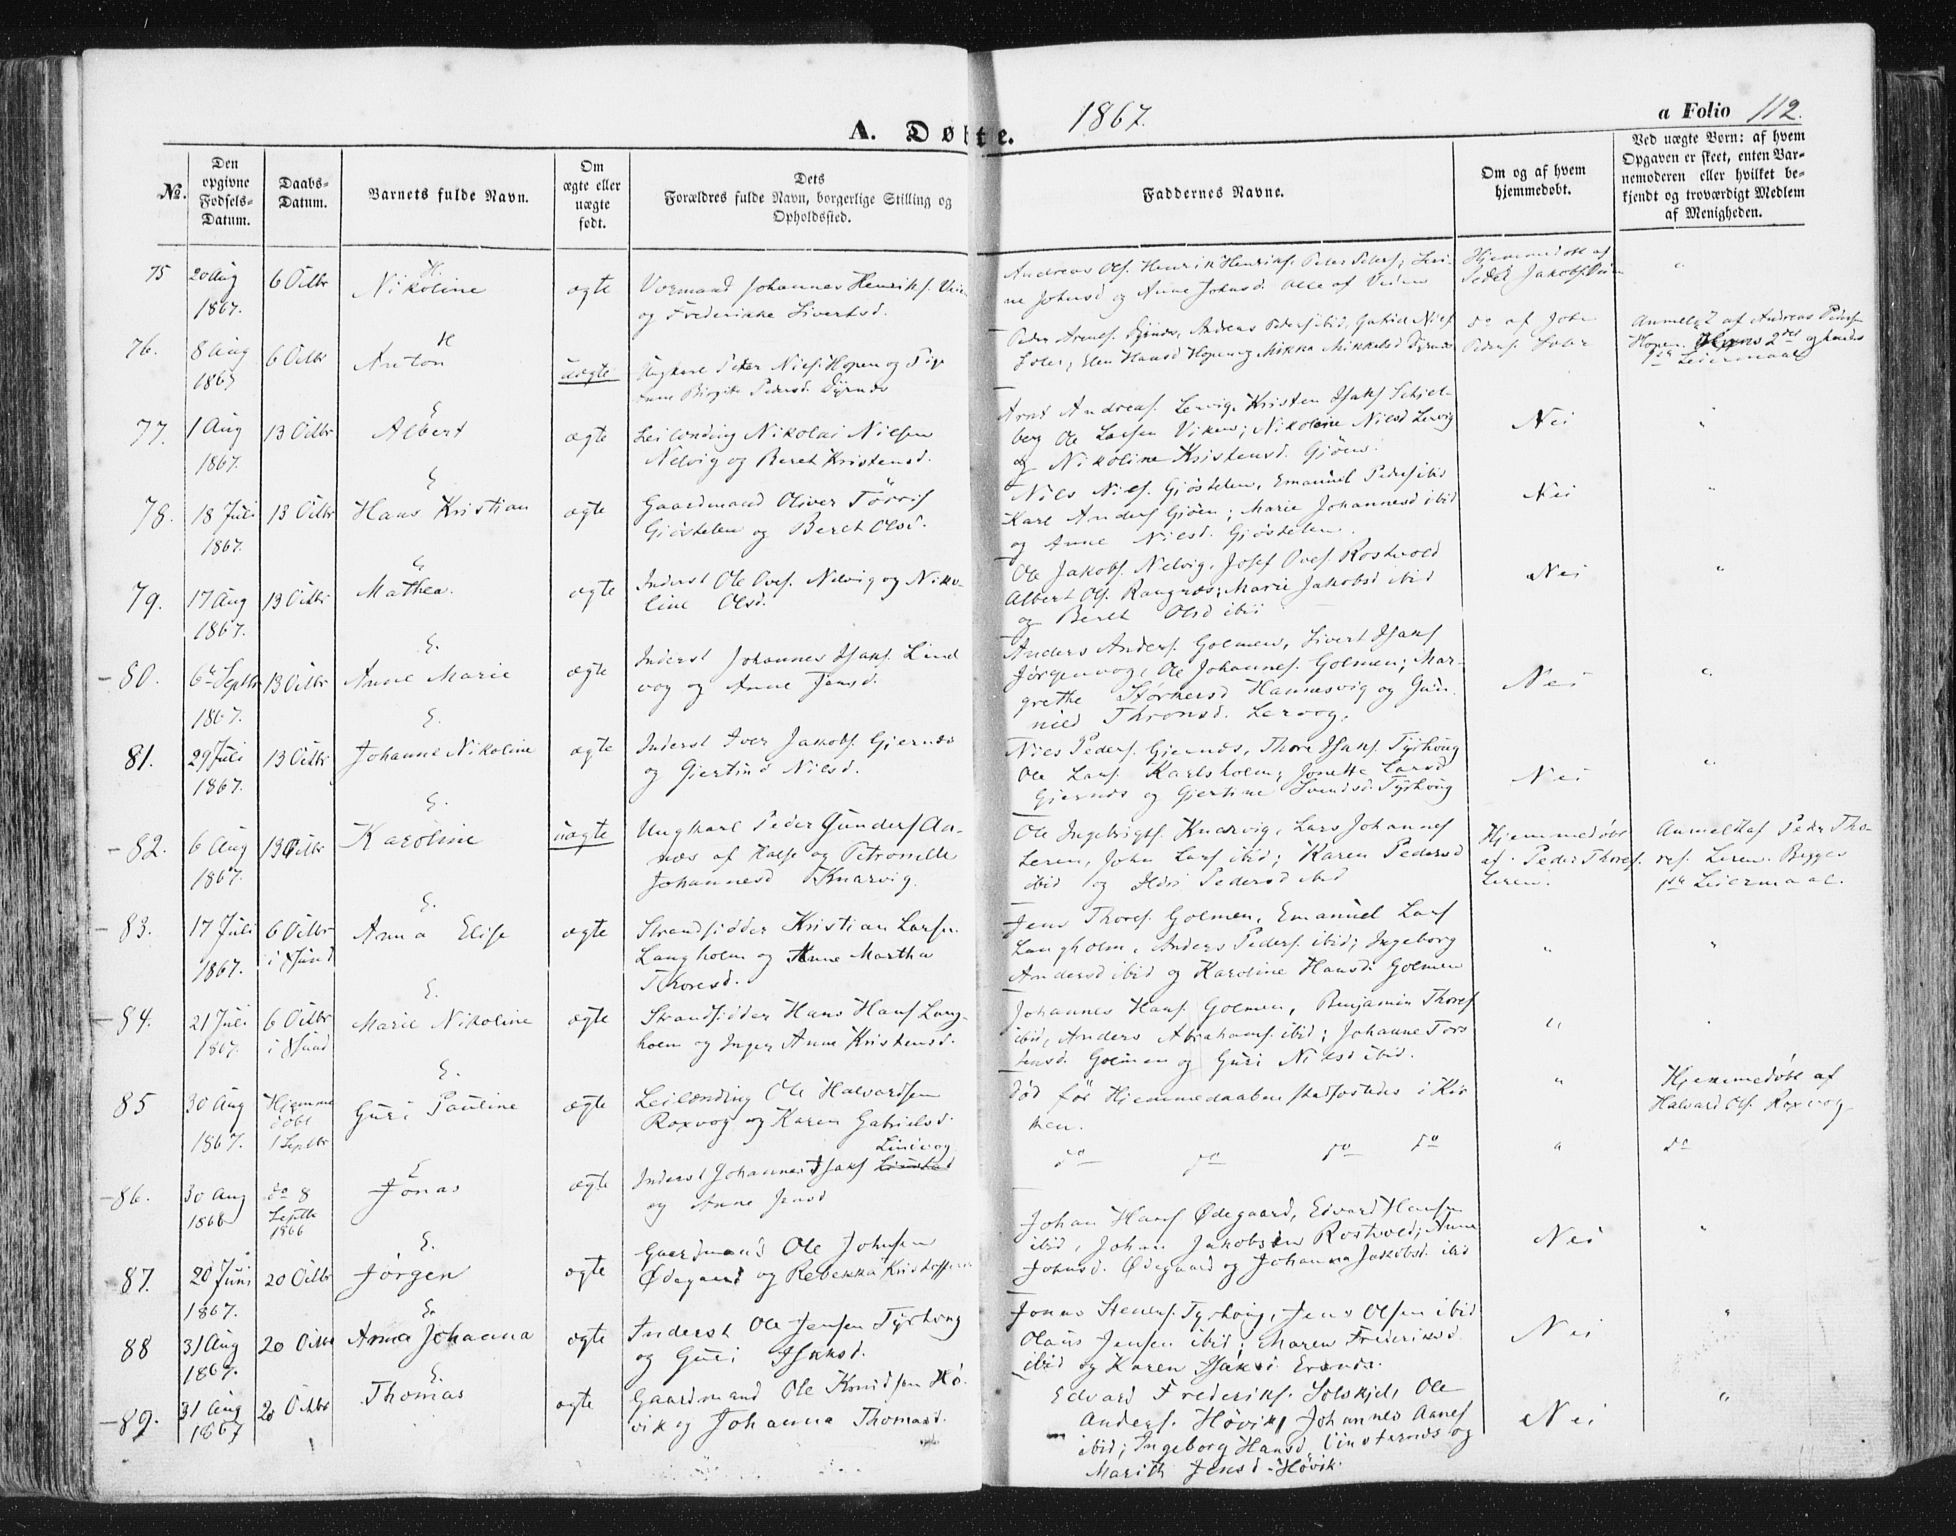 A. Døbte.
1867.
a Folio 112.
№.
Den opgivne Fødsels-Datum.
Daabs-Datum.
Barnets fulde Navn.
Om ægte eller uægte født.
Dets Forældres fulde Navn, borgerlige Stilling og Opholdssted.
Faddernes Navne.
Om og af hvem hjemmedøbt.
Ved uægte Børn: af hvem Opgaven er skeet, enten Barnemoderen eller hvilket bekjendt og troværdigt Medlem af Menigheden.
75
20 Aug
1867.
6 Octbr
H
Nikoline
ægte
Johannes Henriks.
og Frederikke Sivertsd.
Andreas Ols. Henrik Henriks. Peter Peters;
Johnsd og Anne Johnsd. alle af
Hjemmedøbt af
Peder Jakobs.
"
76.
8 Aug
1867
6 Octbr
H
Anton
uægte
Ungkarl Peter Niels. Hopen og Pige
Anne Birgite Pedersd. Dyrnæs
Peder Arents. Dyrnæs, Andreas Peders ibid,
Elen Hansd Hopen og Mikka Mikkelsd Dyrnæs
do af John
Peders.
Anmeldt af Andreas Peders
Hopen. 2det og hendes
1ste Leiermaal
77.
1 Aug
1867.
13 Octbr
E
Albert
ægte
Leilænding Nikolai Nilsen
Nelvig og Beret Kristensd.
Arnt Andreas. Lervig, Kristen Isaks Schjel-
berg Ole Larsen Viken; Nikoline Nielsd Lervig
og Nikoline Kristensd. Gjøen.
Nei
"
78.
18 Juli
1867.
13 Octbr
E
Hans Kristian
ægte
Gaardmand Oliver Tørris
Gjøstelen og Beret Olsd.
Niels Niels. Gjøstelen, Emanuel Peders ibid
Karl Anders Gjøen; Marie Johannesd ibid
og Anne Nielsd. Gjøstelen.
Nei
"
79.
17 Aug
1867.
13 Octbr
E
Mathea.
ægte
Inderst Ole Oves. Nelvig og Niko-
line Olsd.
Ole Jakobs. Nelvig, Josef Oves. Rostvold
Albert Ols. Rangnæs; Marie Jakobsd ibid
og Beret Olsd ibid
Nei
"
80.
6te Septbr
1867.
13 Octbr
E.
Anne Marie
ægte
Inderst Johannes Isaks. Lind
vog og Anne Jensd.
Anders Anders. Golmen, Sivert Isaks
Jørgenvog, Ole Johannes. Golmen; Mar-
grethe Størkersd Hannesvig og Gun-
nild Thronsd. Lervog.
Nei
"
81.
29 Juli
1867.
13 Octbr
E.
Johanne Nikoline
ægte
Inderst Iver Jakobs. Gjernæs
og Gjertine Nilsd.
Niels Peders. Gjernæs, Thore Isaks. Tyrhoug
Ole Lars. Karlsholm; Jonette Larsd
Gjernæs og Gjertine Svendsd. Tyrhoug
Nei
"
82.
6 Aug
1867.
13 Octbr
E.
Karoline
uægte
Ungkarl Peder Gunders Aa-
næs af Halse og Petronelle
Johannesd Knarvig.
Ole Ingebrigts. Knarvig, Lars Johannes
Leren, John Lars ibid; Karen Pedersd
ibid og Pedersd ibid
Hjemmedøbt
af Peder Thores.
Leren.
Anmeldt af Peder Tho-
res. Leren. Begges
1ste Leiermaal.
83.
17 Juli
1867.
6 Octbr
i Xsund
E.
Anna Elise
ægte
Strandsidder Kristian Larsen
Langholm og Anne Martha
Thoresd.
Jens Thores. Golmen, Emanuel Lars
Langholm, Anders Peders. ibid; Ingeborg
Andersd ibid og Karoline Hansd. Golmen
"
"
84.
21 Juli
1867.
6 Octbr
i Xsund
E.
Marie Nikoline
ægte
Strandsidder Hans Hans Lang-
holm og Inger Anne Kristensd.
Johannes Hans. Golmen, Benjamin Thores
ibid, Anders Abrahams. ibid; Johanne Tors
tensd. Golmen og Guri Nilsd ibid.
"
"
85
30 Aug
1867.
Hjemme
døbt
1 Septbr
E.
Guri Pauline
ægte
Leilænding Ole Halvardsen
Roxvog og Karen Gabrielsd.
Død før Hjemmedaaben stadfæstedes i Kir
ken.
"
Hjemmedøbt af
Halvard Ols. Roxvog
86.
30 Aug
1866
do 8
Septbr
1866
E
Jonas
ægte
Lindvog
Inderst Johannes Isaks
og Anne Jensd
do do do do
"
do
87.
20 Juni
1867.
20 Octbr
E.
Jørgen
ægte
Gaardmand Ole Johnsen
Ødegaard og Rebekka Kristoffersd.
Johan Hans Ødegaard, Edvard Hansen
ibid, Johan Jakobsen Rostvold; Anne
Johnsd. Ødegaard og Johanna Jakobsd. ibid
Nei
"
88
31 Aug
1867.
20 Octbr
E.
Anna Johanna
ægte
Inderst Ole Jensen Tyrhoug
og Guri Isaksd.
Jonas Steners. Tyrhoug, Jens Olsen ibid
Olaus Jensen ibid; Maren Frederiksd.
ibid og Karen Isaksd.
Nei
"
89.
31 Aug
1867
20 Octbr
E.
Thomas
ægte
Gaardmand Ole Knudsen Hø-
vik og Johanna Thomasd.
Edvard Frederiks. Solskjel, Ole
Anders. Høvik, Johannes
ibid; Ingeborg Hansd. og
Marith Jensd. Høvik.
Nei
"